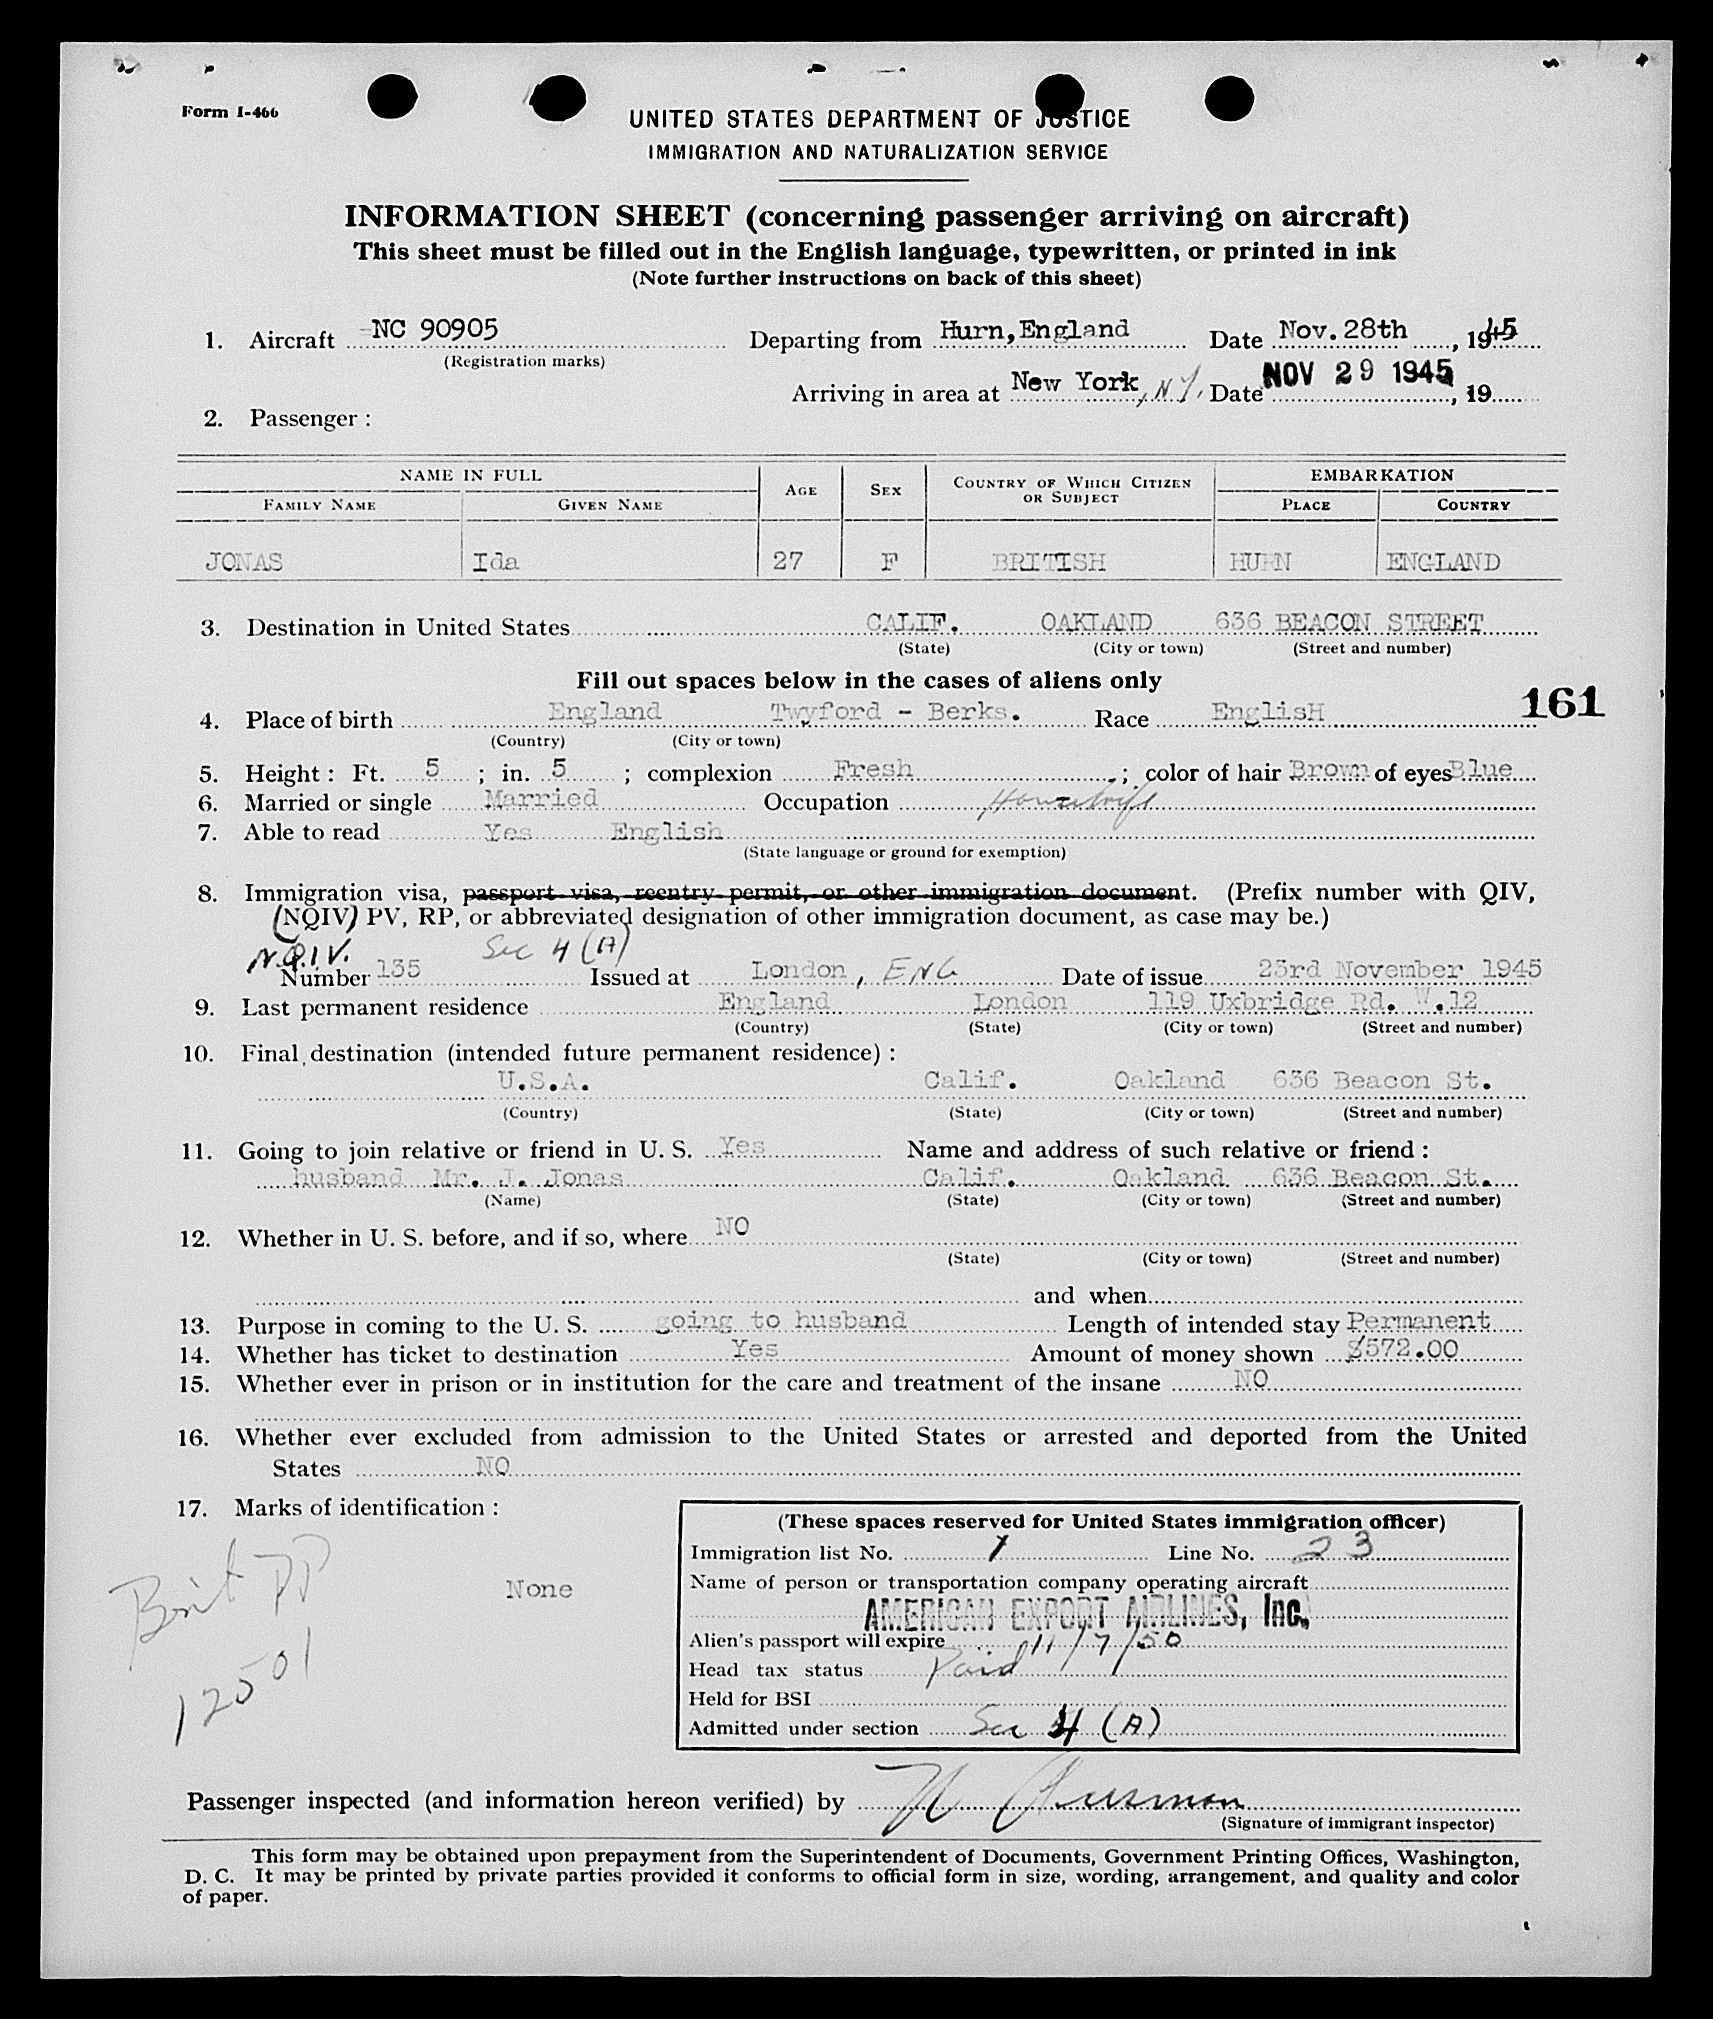 Form I-466
UNITED STATES DEPARTMENT OF JUSTICE
IMMIGRATION AND NATURALIZATION SERVICE
INFORMATION SHEET (concerning passenger arriving on aircraft)
This sheet must be filled out in the English language, typewritten, or printed in ink
(Note further instructions on back of this sheet)
1. Aircraft NC 90905 Departing from Hurn, England Date Nov. 28th, 1945
(Registration marks)
Arriving in area at New York, N.Y. Date NOV 29 1945, 19
2. Passenger :
NAME IN FULL AGE SEX COUNTRY OF WHICH CITIZEN OR SUBJECT EMBARKATION
FAMILY NAME GIVEN NAME PLACE COUNTRY
JONAS Ida 27 F BRITISH HURN ENGLAND
3. Destination in United States CALIF. OAKLAND 636 BEACON STREET
(State) (City or town) (Street and number)
Fill out spaces below in the cases of aliens only
161
4. Place of birth England Twyford - Berks. Race EnglisH
(Country) (City or town)
5. Height : Ft. 5 ; in. 5 ; complexion Fresh ; color of hair Brown of eyes Blue
6. Married or single Married Occupation Housewife
7. Able to read Yes English
(State language or ground for exemption)
8. Immigration visa, passport visa, reentry permit, or other immigration document. (Prefix number with QIV,
(NQIV) PV, RP, or abbreviated designation of other immigration document, as case may be.)
N.Q.I.V. Sec 4 (A)
Number 135 Issued at London, ENG Date of issue 23rd November 1945
9. Last permanent residence England London 119 Uxbridge Rd. W.12
(Country) (State) (City or town) (Street and number)
10. Final destination (intended future permanent residence) :
U.S.A. Calif. Oakland 636 Beacon St.
(Country) (State) (City or town) (Street and number)
11. Going to join relative or friend in U. S. Yes Name and address of such relative or friend :
husband Mr. J. Jonas Calif. Oakland 636 Beacon St.
(Name) (State) (City or town) (Street and number)
12. Whether in U. S. before, and if so, where NO
(State) (City or town) (Street and number)
and when
13. Purpose in coming to the U. S. going to husband Length of intended stay Permanent
14. Whether has ticket to destination Yes Amount of money shown $572.00
15. Whether ever in prison or in institution for the care and treatment of the insane NO
16. Whether ever excluded from admission to the United States or arrested and deported from the United
States NO
17. Marks of identification :
Brit PP
12501
None
(These spaces reserved for United States immigration officer)
Immigration list No. 1 Line No. 23
Name of person or transportation company operating aircraft
AMERICAN EXPORT AIRLINES, Inc.
Alien's passport will expire 11/7/50
Head tax status Paid
Held for BSI
Admitted under section Sec 4 (A)
Passenger inspected (and information hereon verified) by
(Signature of immigrant inspector)
This form may be obtained upon prepayment from the Superintendent of Documents, Government Printing Offices, Washington,
D. C. It may be printed by private parties provided it conforms to official form in size, wording, arrangement, and quality and color
of paper.